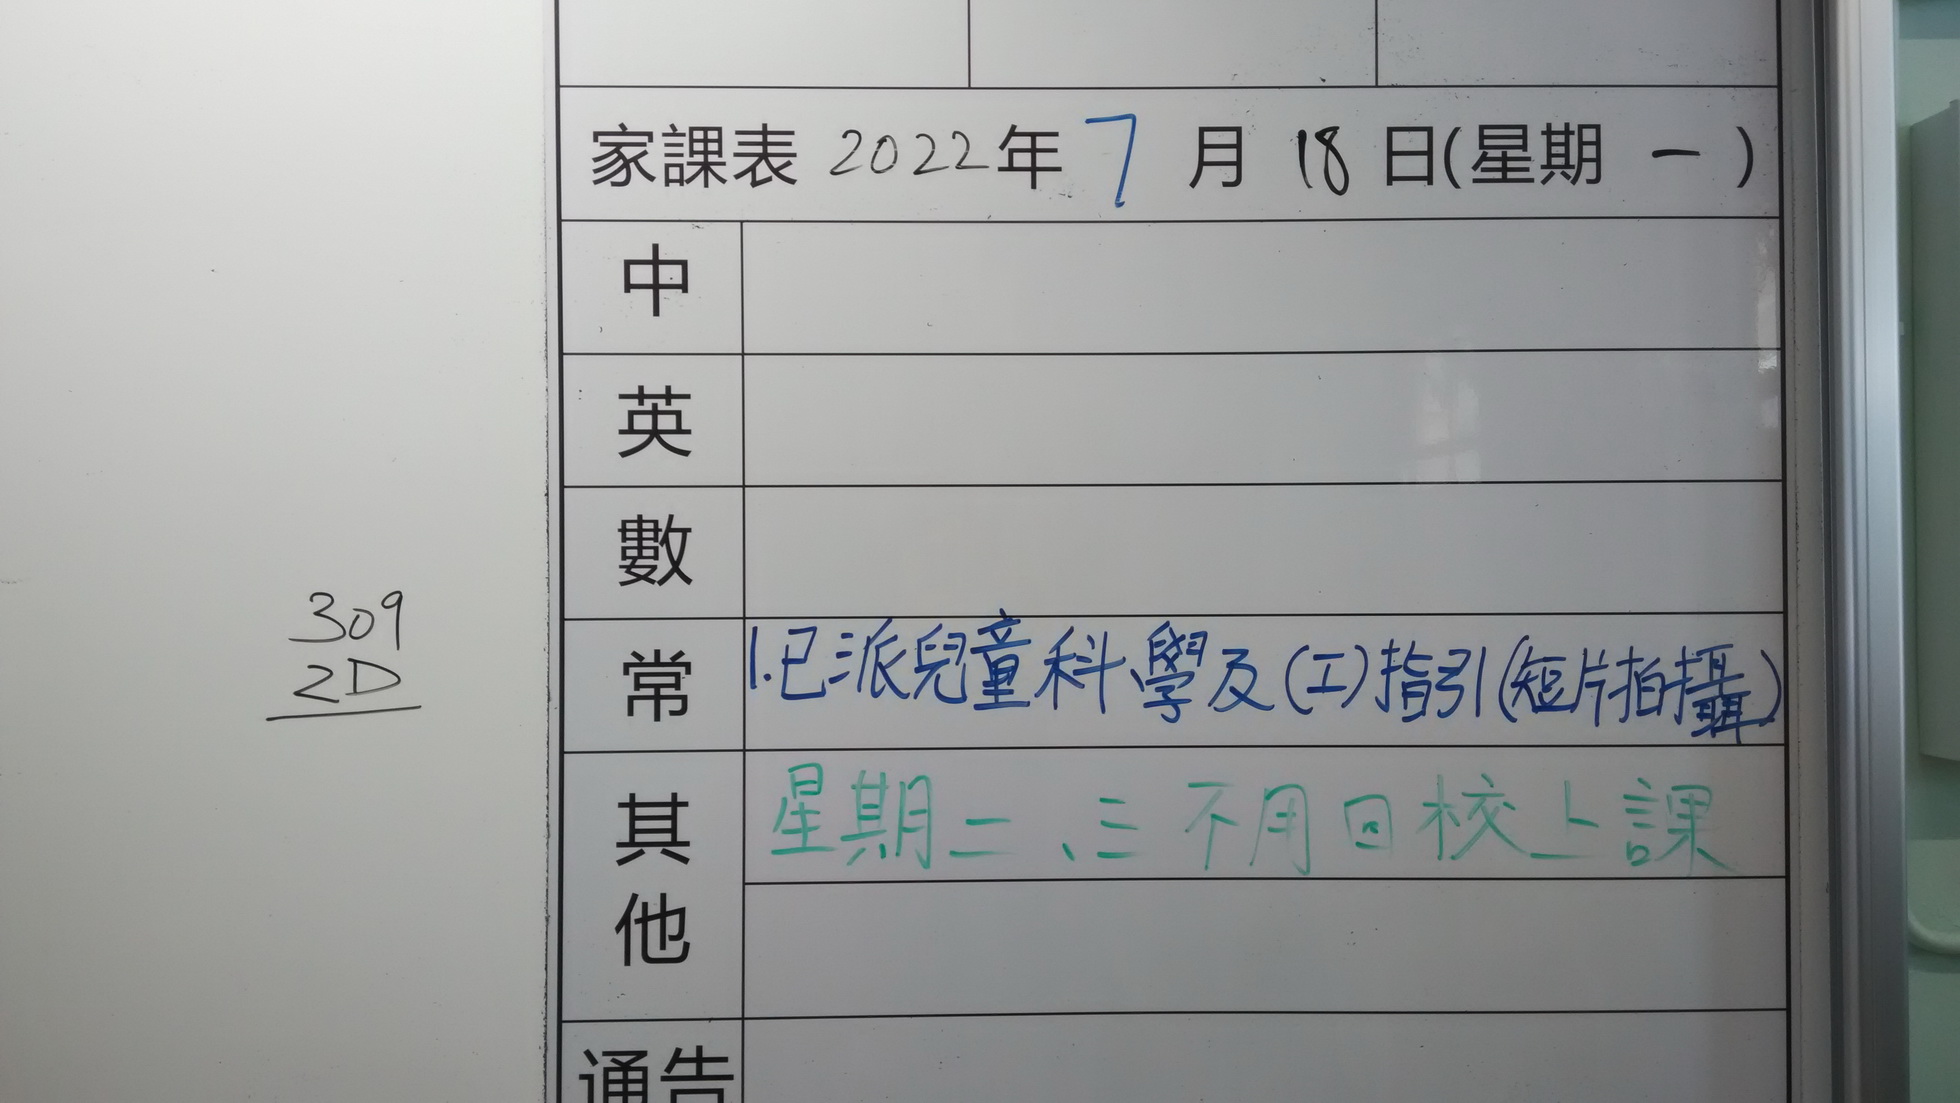 家課表 2022年 7 月 18 日(星期 一 )
中
英
數
309
2D
常 1.已派兒童科學及(工)指引(短片拍攝)
其他 星期二、三不用回校上課
通告